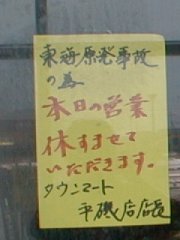 東海原発事故
の為
本日の営業
休ませて
いただきます。
タウンマート
平磯店店長